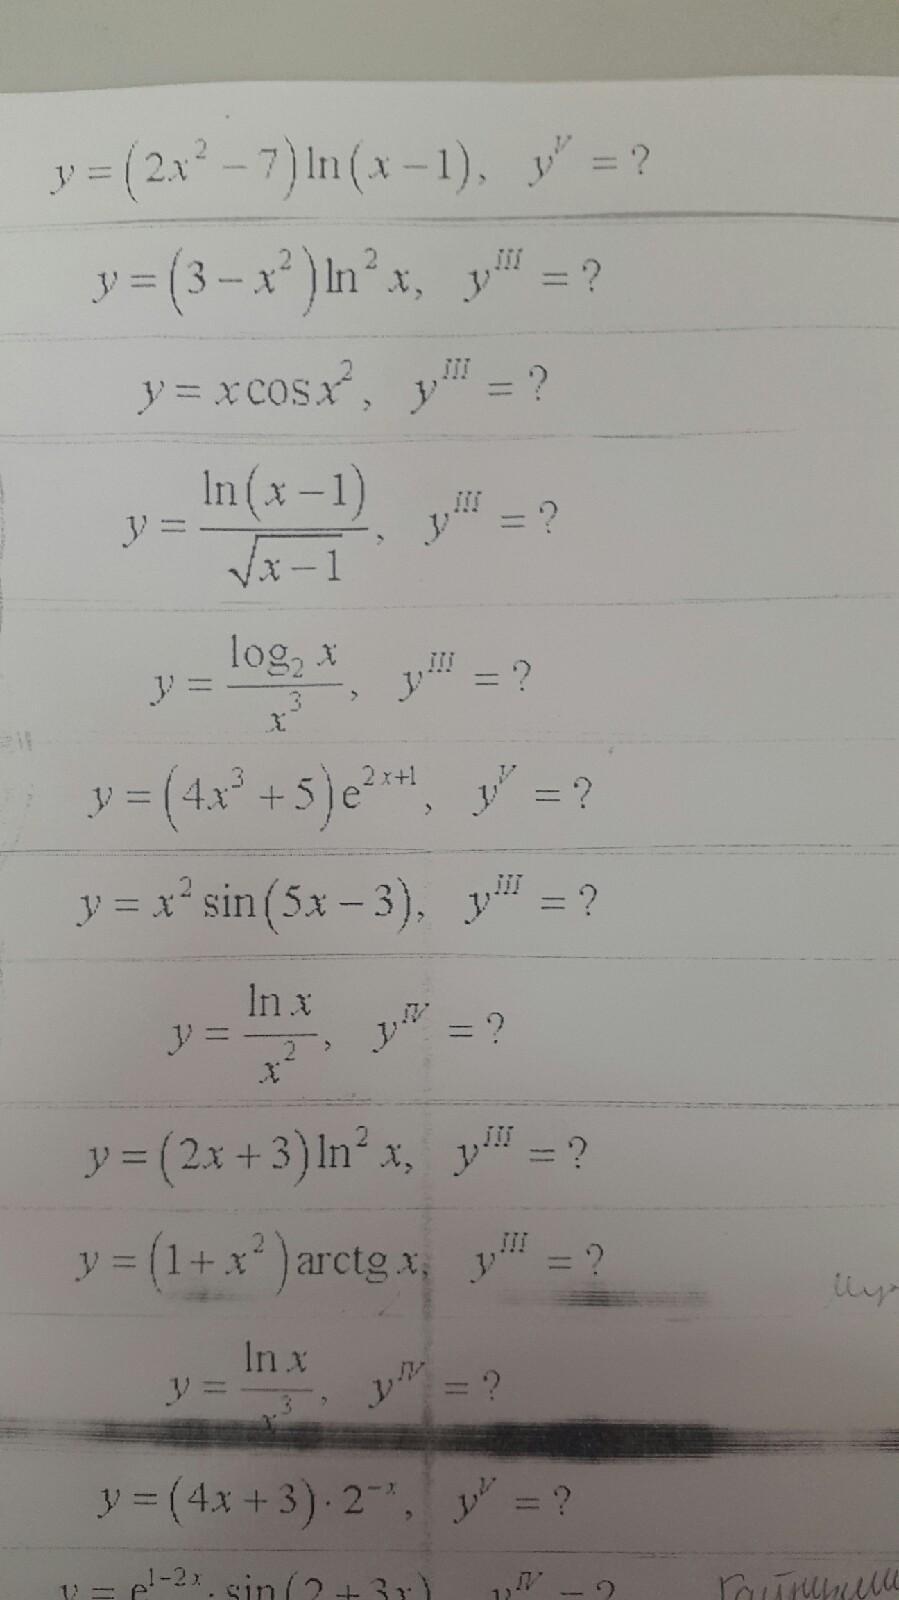 y = (2x² − 7) ln(x − 1), y^V = ?
y = (3 − x²) ln² x, y^III = ?
y = x cos x², y^III = ?
y = ln(x − 1) / √(x − 1), y^III = ?
y = log₂ x / x³, y^III = ?
y = (4x³ + 5) e^(2x+1), y^V = ?
y = x² sin(5x − 3), y^III = ?
y = ln x / x², y^IV = ?
y = (2x + 3) ln² x, y^III = ?
y = (1 + x²) arctg x, y^III = ?
y = ln x / x³, y^IV = ?
y = (4x + 3) · 2^(−x), y^V = ?
y = e^(1−2x) · sin(2 + 3x), y^IV = ?